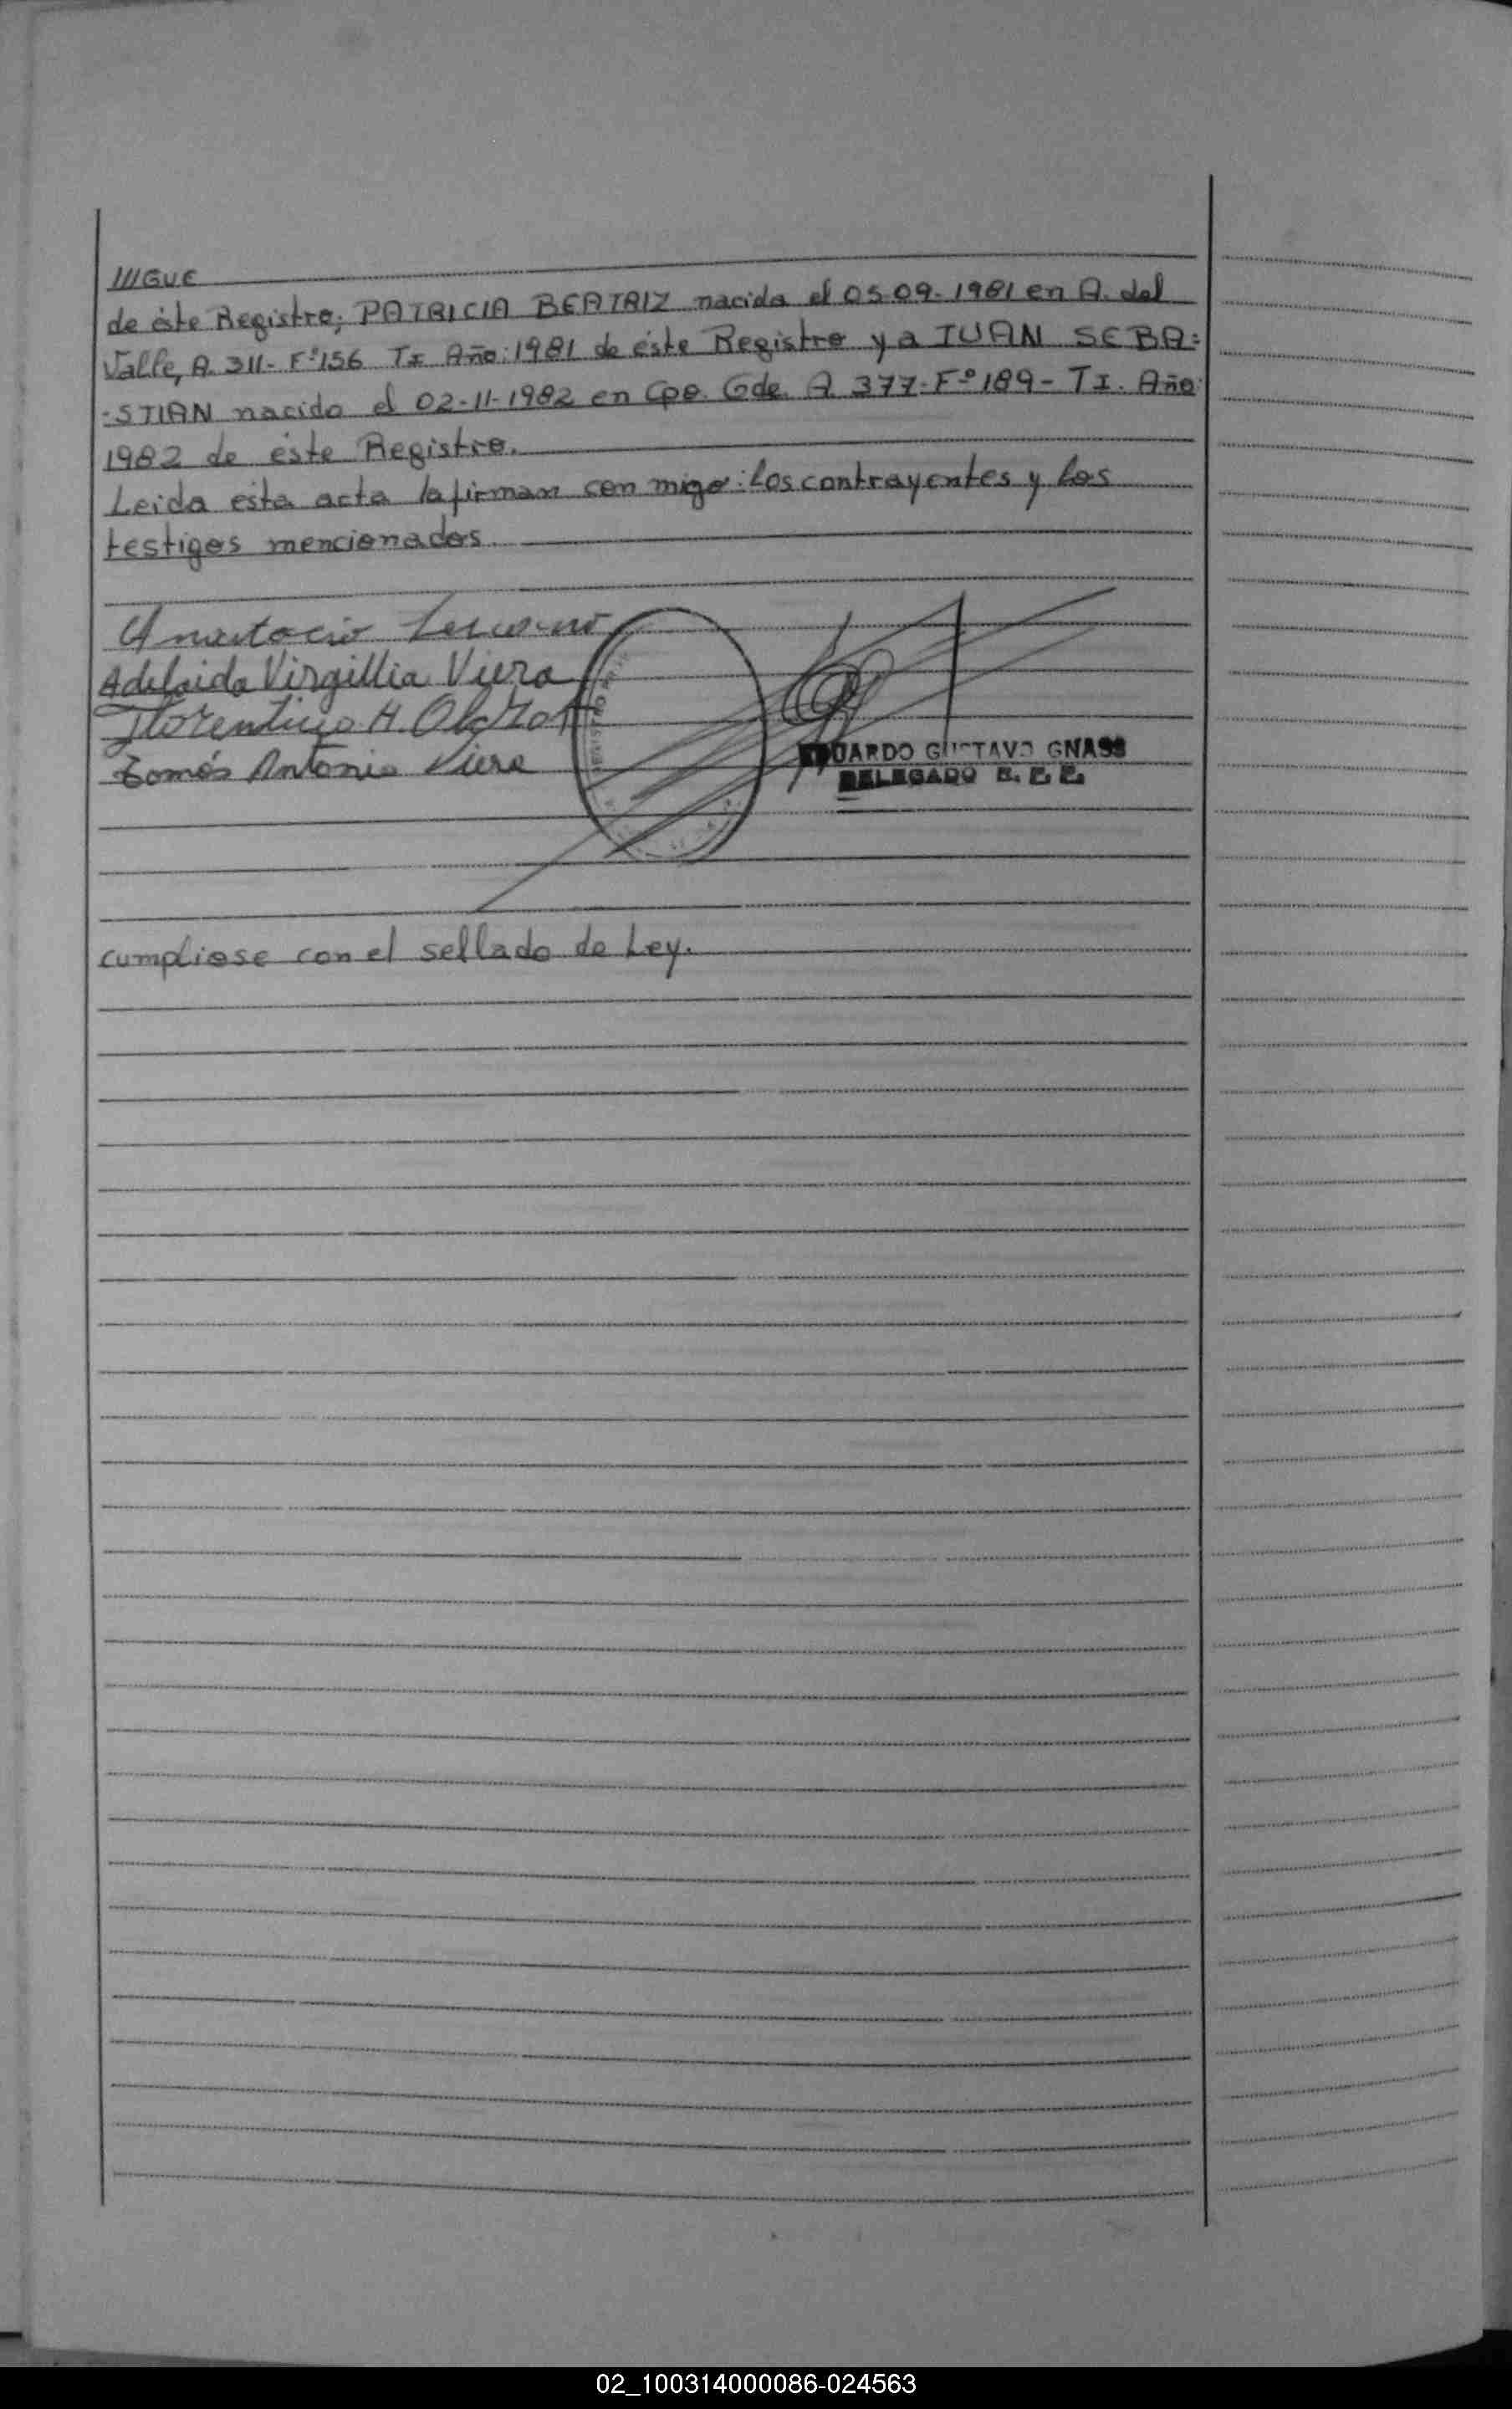 ///GUE
de éste Registro; PATRICIA BEATRIZ nacida el 05-09-1981 en A. del
Valle, A. 311- Fº156 TI Año: 1981 de éste Registro y a JUAN SEBA=
-STIAN nacido el 02-11-1982 en Cpo. Gde. A 377-Fº189- TI. Año:
1982 de éste Registro.
Leida esta acta la firman con migo: los contrayentes y los
testigos mencionados
Anastacio
Adelaida Virgillia Viera
Florentino A.
Tomás Antonio Viera
EDUARDO GUSTAVO GNASS
DELEGADO
cumpliose con el sellado de Ley.
02_100314000086-024563